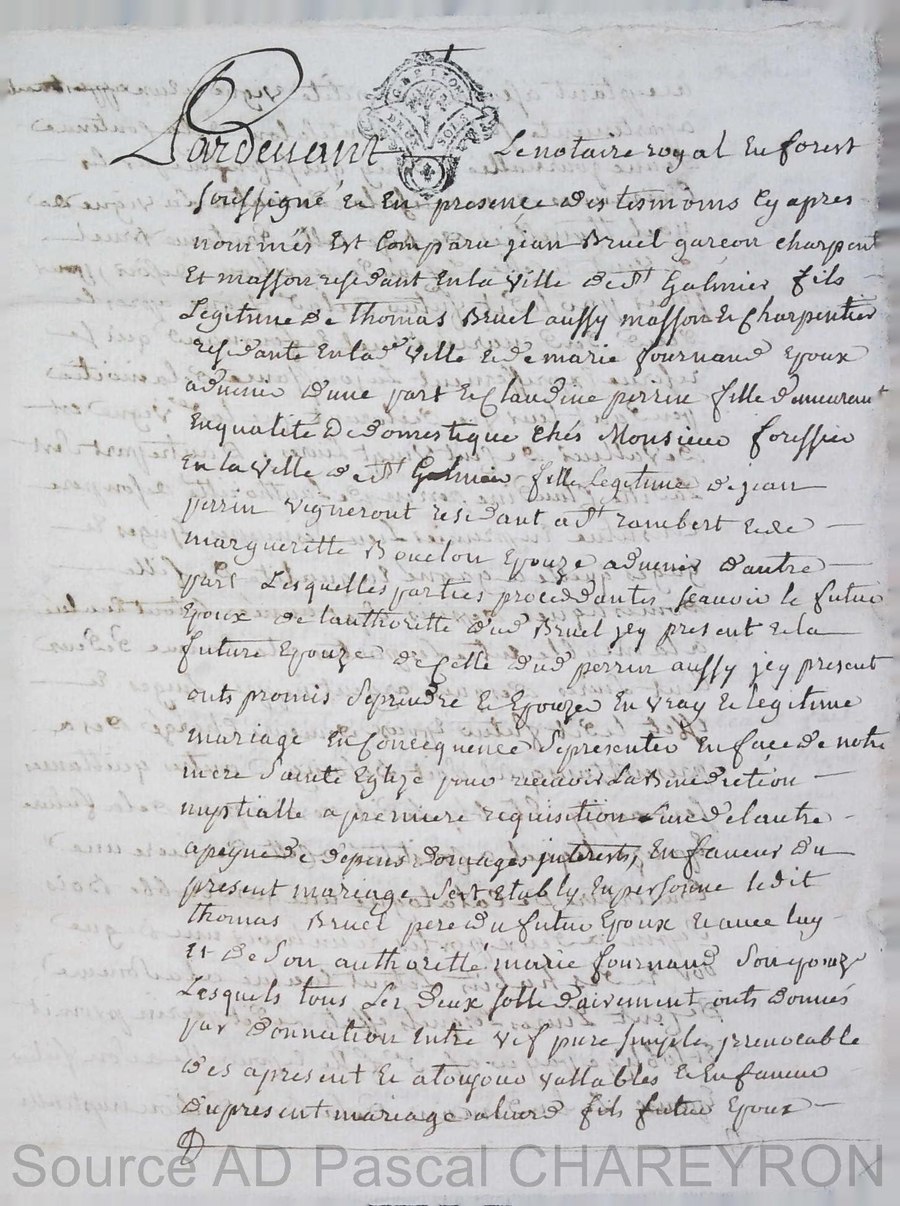 Pardevant Le notaire royal En forest
soussigné Et En presence des tesmoins Cy apres
nommés Est Comparu jean Bruel garcon charpent
Et masson residant En la ville de st Galmier fils
Legitime de thomas Bruel aussy masson & charpentier
residante En lad ville & de marie fournand Epoux
advenir d'une part & Claudine perrin fille demeurant
En qualité de domestique chés Monsieur forissier
En la ville de st Galmier fille Legitime de jean
perrin vigneront residant a st rambert & de
margueritte Epouze advenir d'autre
part Lesquelles parties procedantes scavoir le futur
Epoux de l'authoritté dud Bruel jcy present & la
future Epouze de Celle dud perrin aussy jcy present
onts promis se prendre & Epouzer En vray & legitime
mariage En Concequence se presenter En face de notre
mere Sainte Eglize pour recevoir La Benediction
nuptialle a premiere requisition L'un de l'autre
a peyne de depens domages interests, En faveur du
present mariage s'est Etably En personne ledit
thomas Bruel pere du futur Epoux & avec luy
Et de Son authoritté marie fournand Son epouze
Lesquels tous Les deux sollidairement onts donnés
par donnation Entre vif pure simple jrrevocable
des apresent & a toujour vallables & En faveur
du present mariage aud fils futur Epoux
Source AD Pascal CHAREYRON